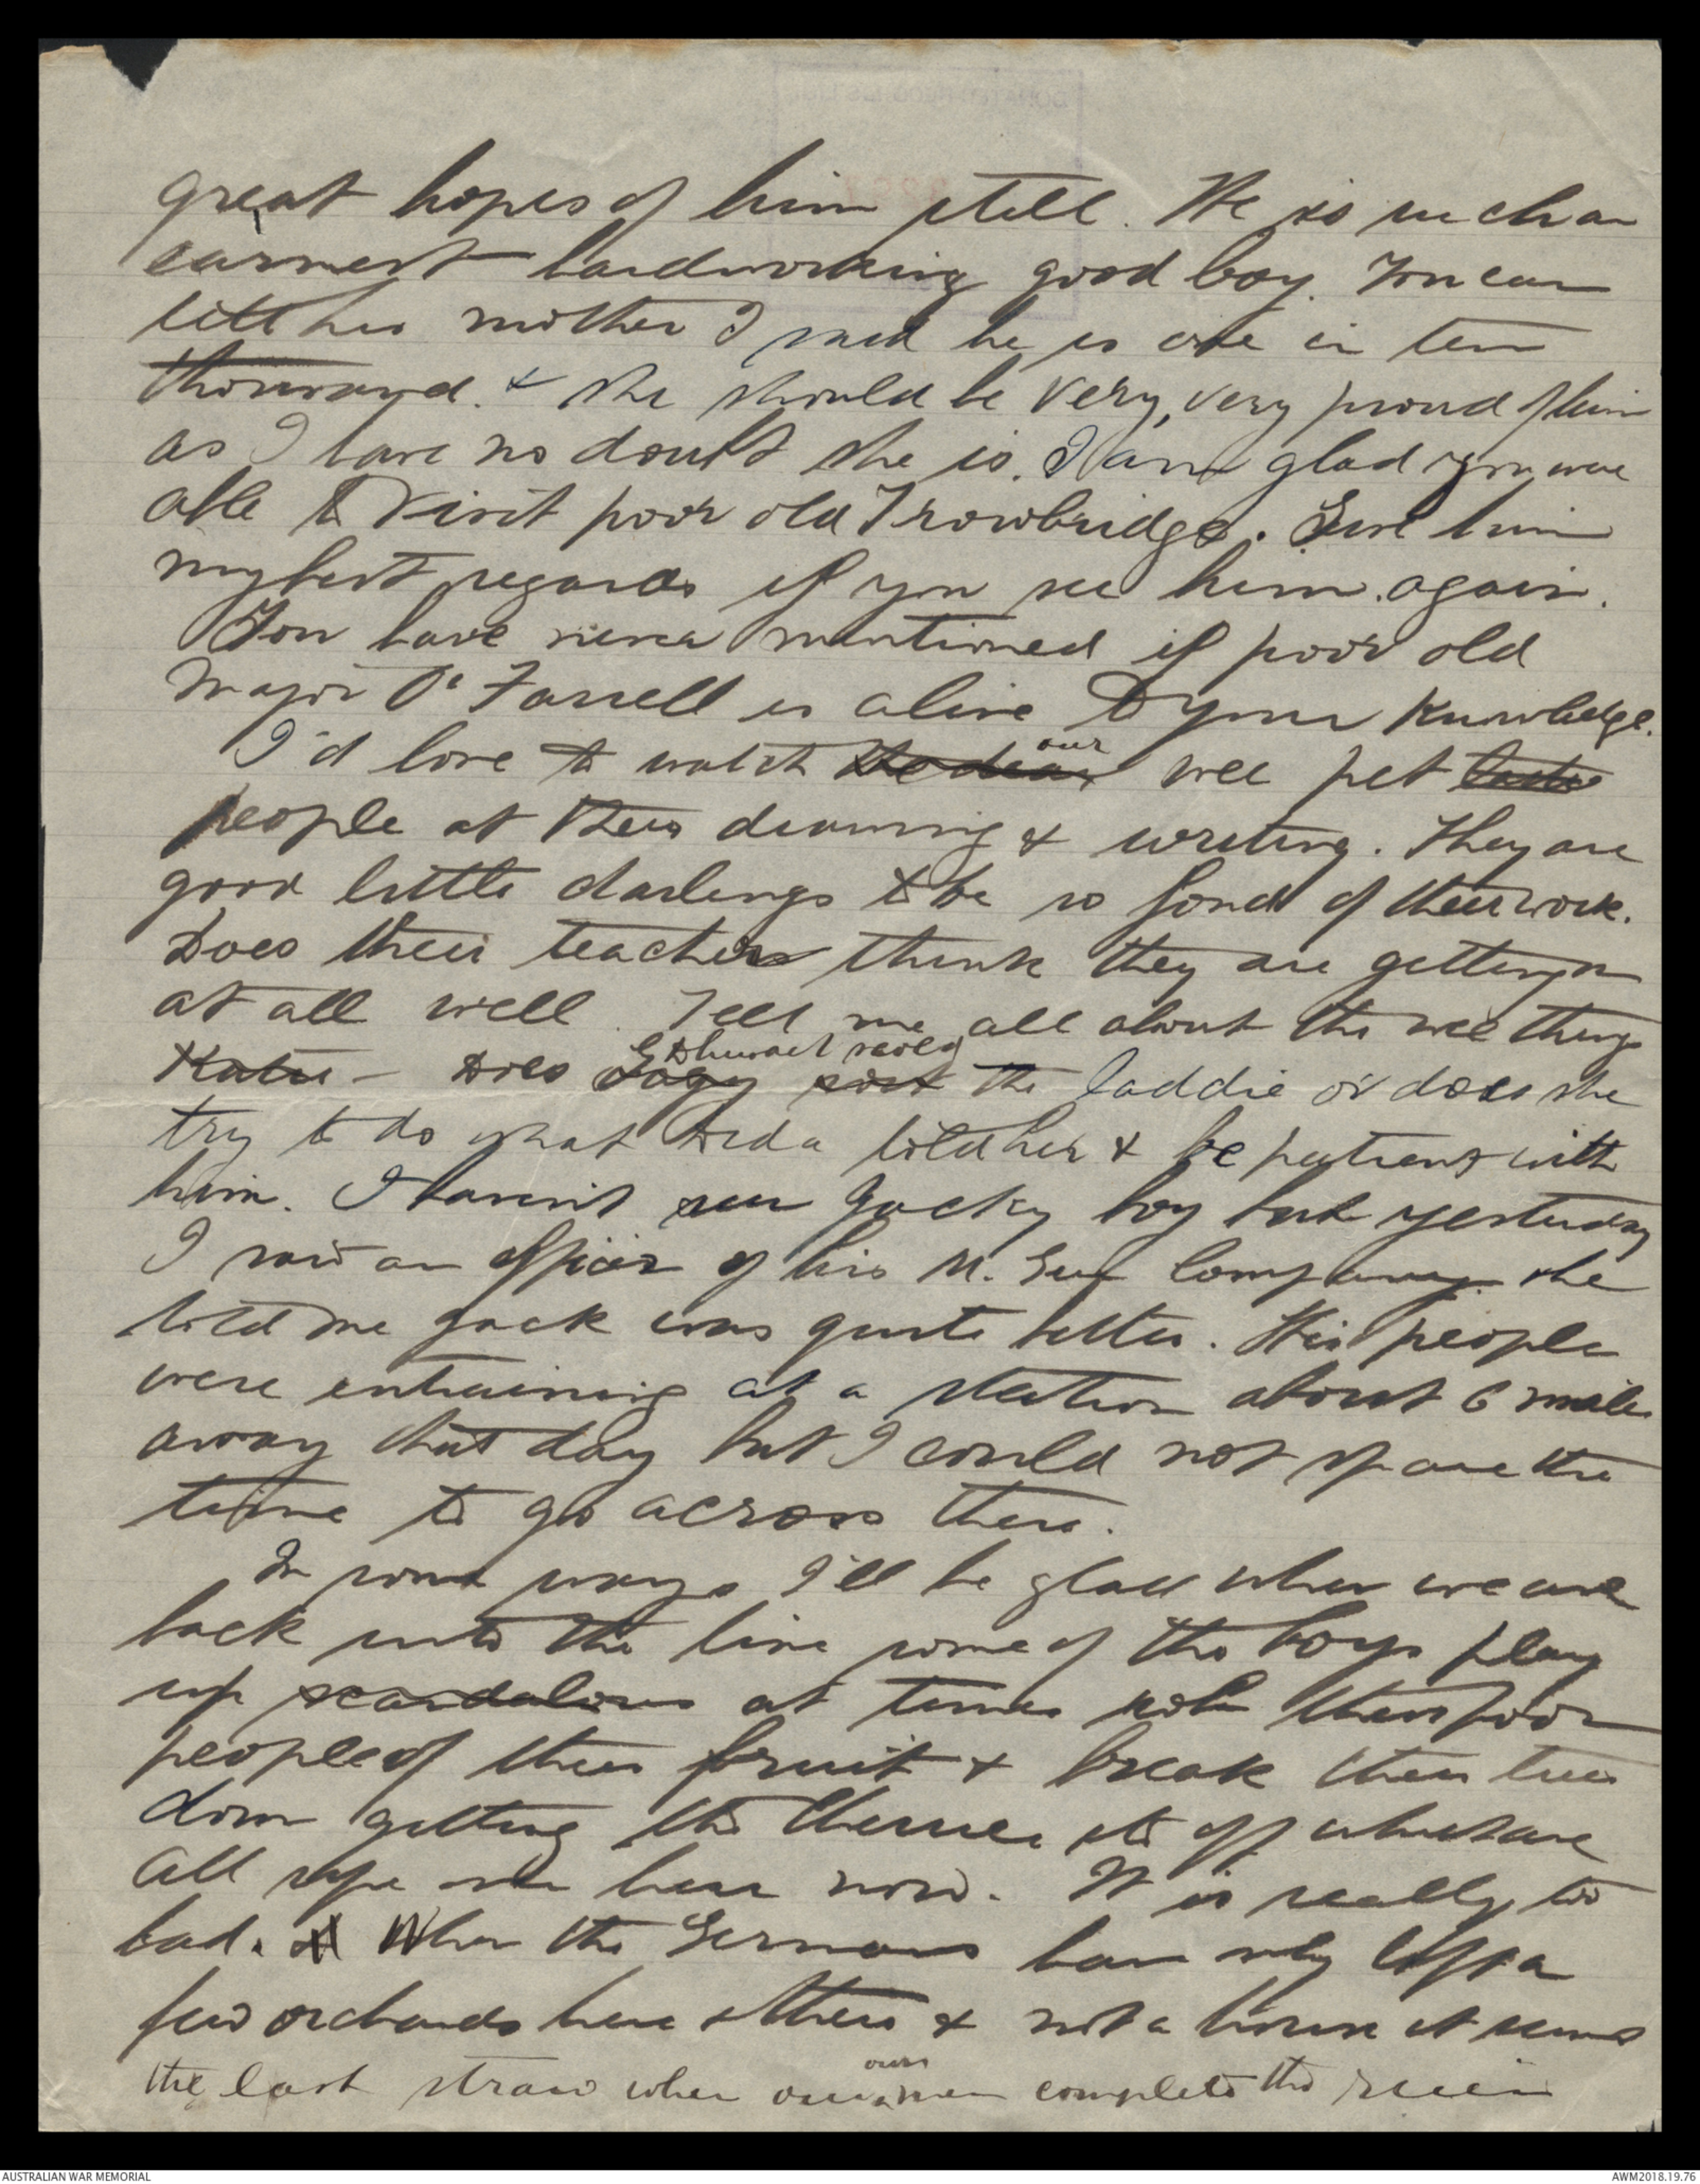 great hopes of him still. He is such an
earnest hardworking good boy. You can
tell his mother I said he is one in ten
thousand. & she should be very, very proud of him
as I have no doubt she is. I am glad you were
able to visit poor old Trowbridge. Give him
my best regards if you see him again.
You have never mentioned if poor old
Major O'Farrell is alive to your knowledge.
I'd love to watch the dear our wee pet
people at their drawing & writing. They are
good little darlings to be so fond of their work.
Does their teachers think they are getting on
at all well. Tell me all about the wee things
Katie - Does the laddie or does she
try to do what Dida told her & be patient with
him. I haven't seen Jacky boy but yesterday
I saw an officer of his M. Gun Company. he
told me Jack was quite better. His people
were entraining at a station about 6 miles
away that day but I could not spare the
time to go across there.
In some ways I'll be glad when we are
back into the line some of the boys play
up scandalous at times rob these poor
people of their fruit & break their trees
down getting the cherries etc off which are
all ripe over here now. It is really too
bad. When the Germans have only left a
few orchards here & there & not a house it seems
the last straw when our men complete the ruin
AUSTRALIAN WAR MEMORIAL
AWM2018.19.76